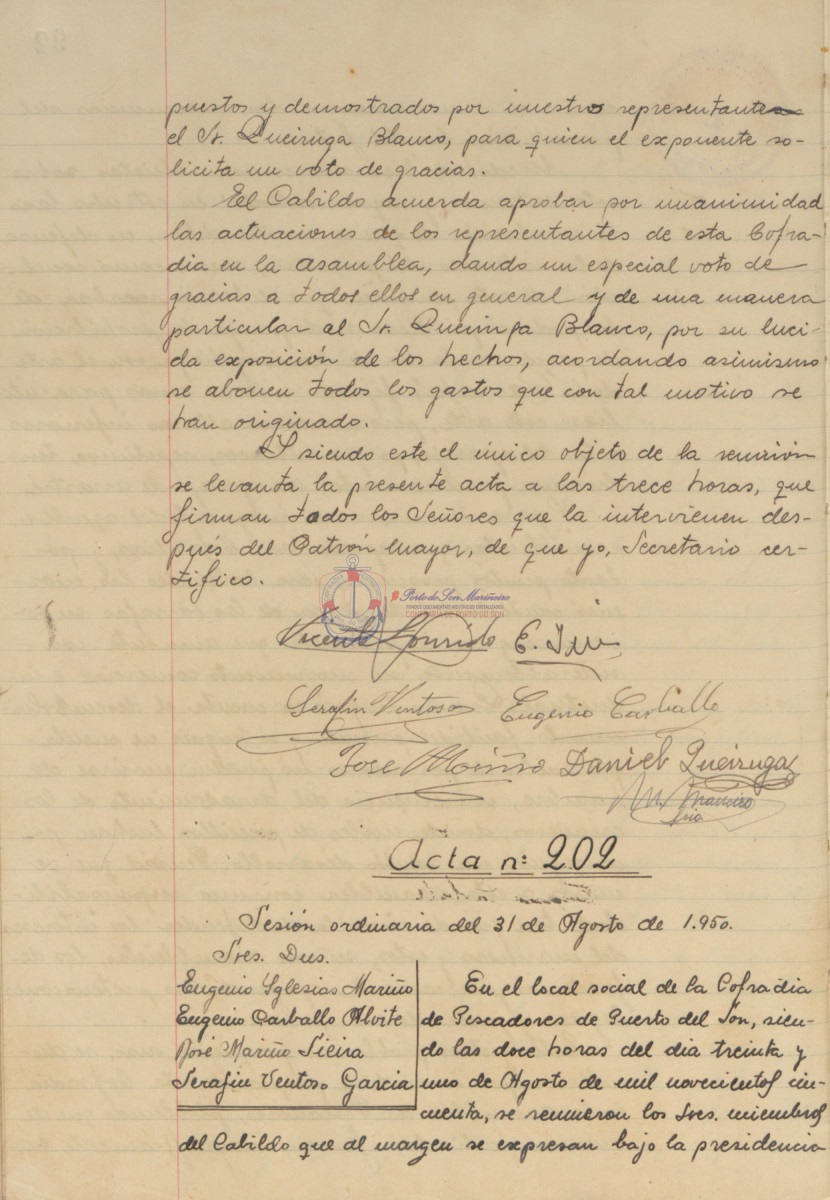 puestos y demostrados por nuestro representante
el Sr. Queiruga Blanco, para quien el exponente so-
licita un voto de gracias.
El Cabildo acuerda aprobar por unanimidad
las actuaciones de los representantes de esta Cofra-
dia en la asamblea, dando un especial voto de
gracias a todos ellos en general y de una manera
particular al Sr. Queiruga Blanco, por su luci-
da exposición de los hechos, acordando asimismo
se abonen todos los gastos que con tal motivo se
han originado.
Y siendo este el único objeto de la reunión
se levanta la presente acta a las trece horas, que
firman todos los Señores que la intervienen des-
pués del Patrón mayor, de que yo, Secretario cer-
tifico.
Porto do Son Mariñeiro
CONFRARÍA DE PORTO DO SON
Vicente
Serafin Ventoso Eugenio Carballo
Jose Daniel Queiruga
Acta nº: 202
Sesión ordinaria del 31 de Agosto de 1.950.
Sres. Dus.
Eugenio Yglesias Mariño
Eugenio Carballo Alvite
José Mariño Sieira
Serafin Ventoso Garcia
En el local social de la Cofradia
de Pescadores de Puerto del Son, sien-
do las doce horas del dia treinta y
uno de Agosto de mil novecientos cin-
cuenta, se reunieron los Sres. miembros
del Cabildo que al margen se expresan bajo la presidencia